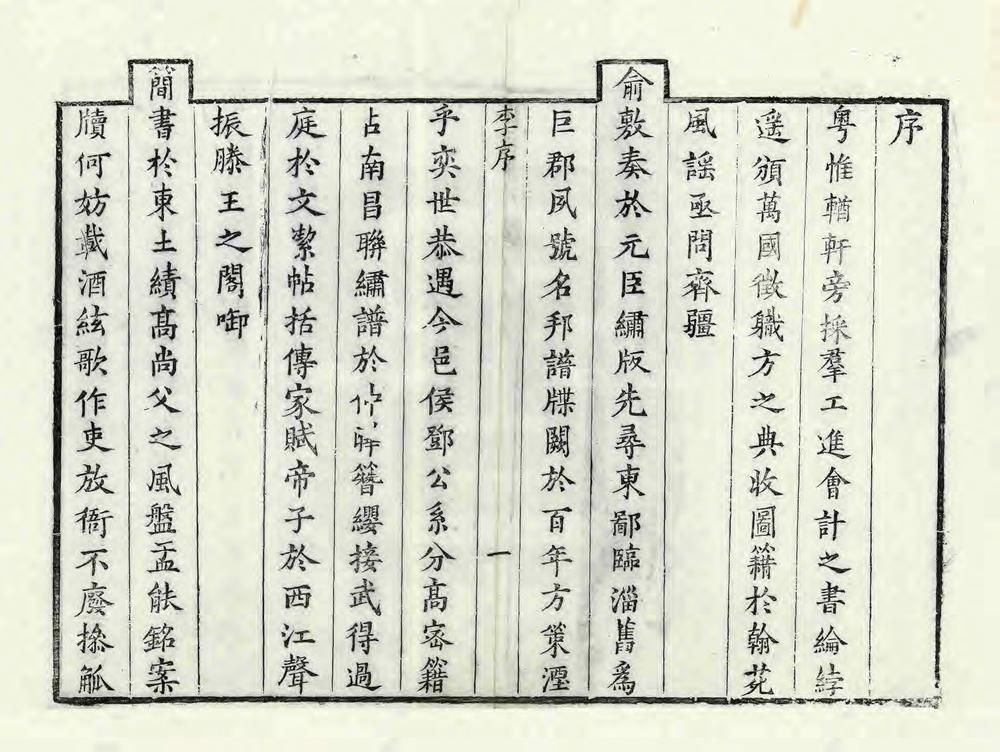 序
粵惟輶軒旁採羣工進會計之書綸綍
遥頒萬國徵職方之典收圖籍於翰苑
風謡亟問齊疆
俞敷奏於元臣繡版先尋東鄙臨淄舊爲
巨郡夙號名邦譜牒闕於百年方策湮
李序
一
乎奕世恭遇今邑侯鄧公系分高密籍
占南昌聯繡譜於簪纓接武得過
庭於文絜帖括傳家賦帝子於西江聲
振滕王之閣啣
簡書於東土績高尚父之風盤盂能銘案
牘何妨載酒絃歌作吏放衙不廢操觚